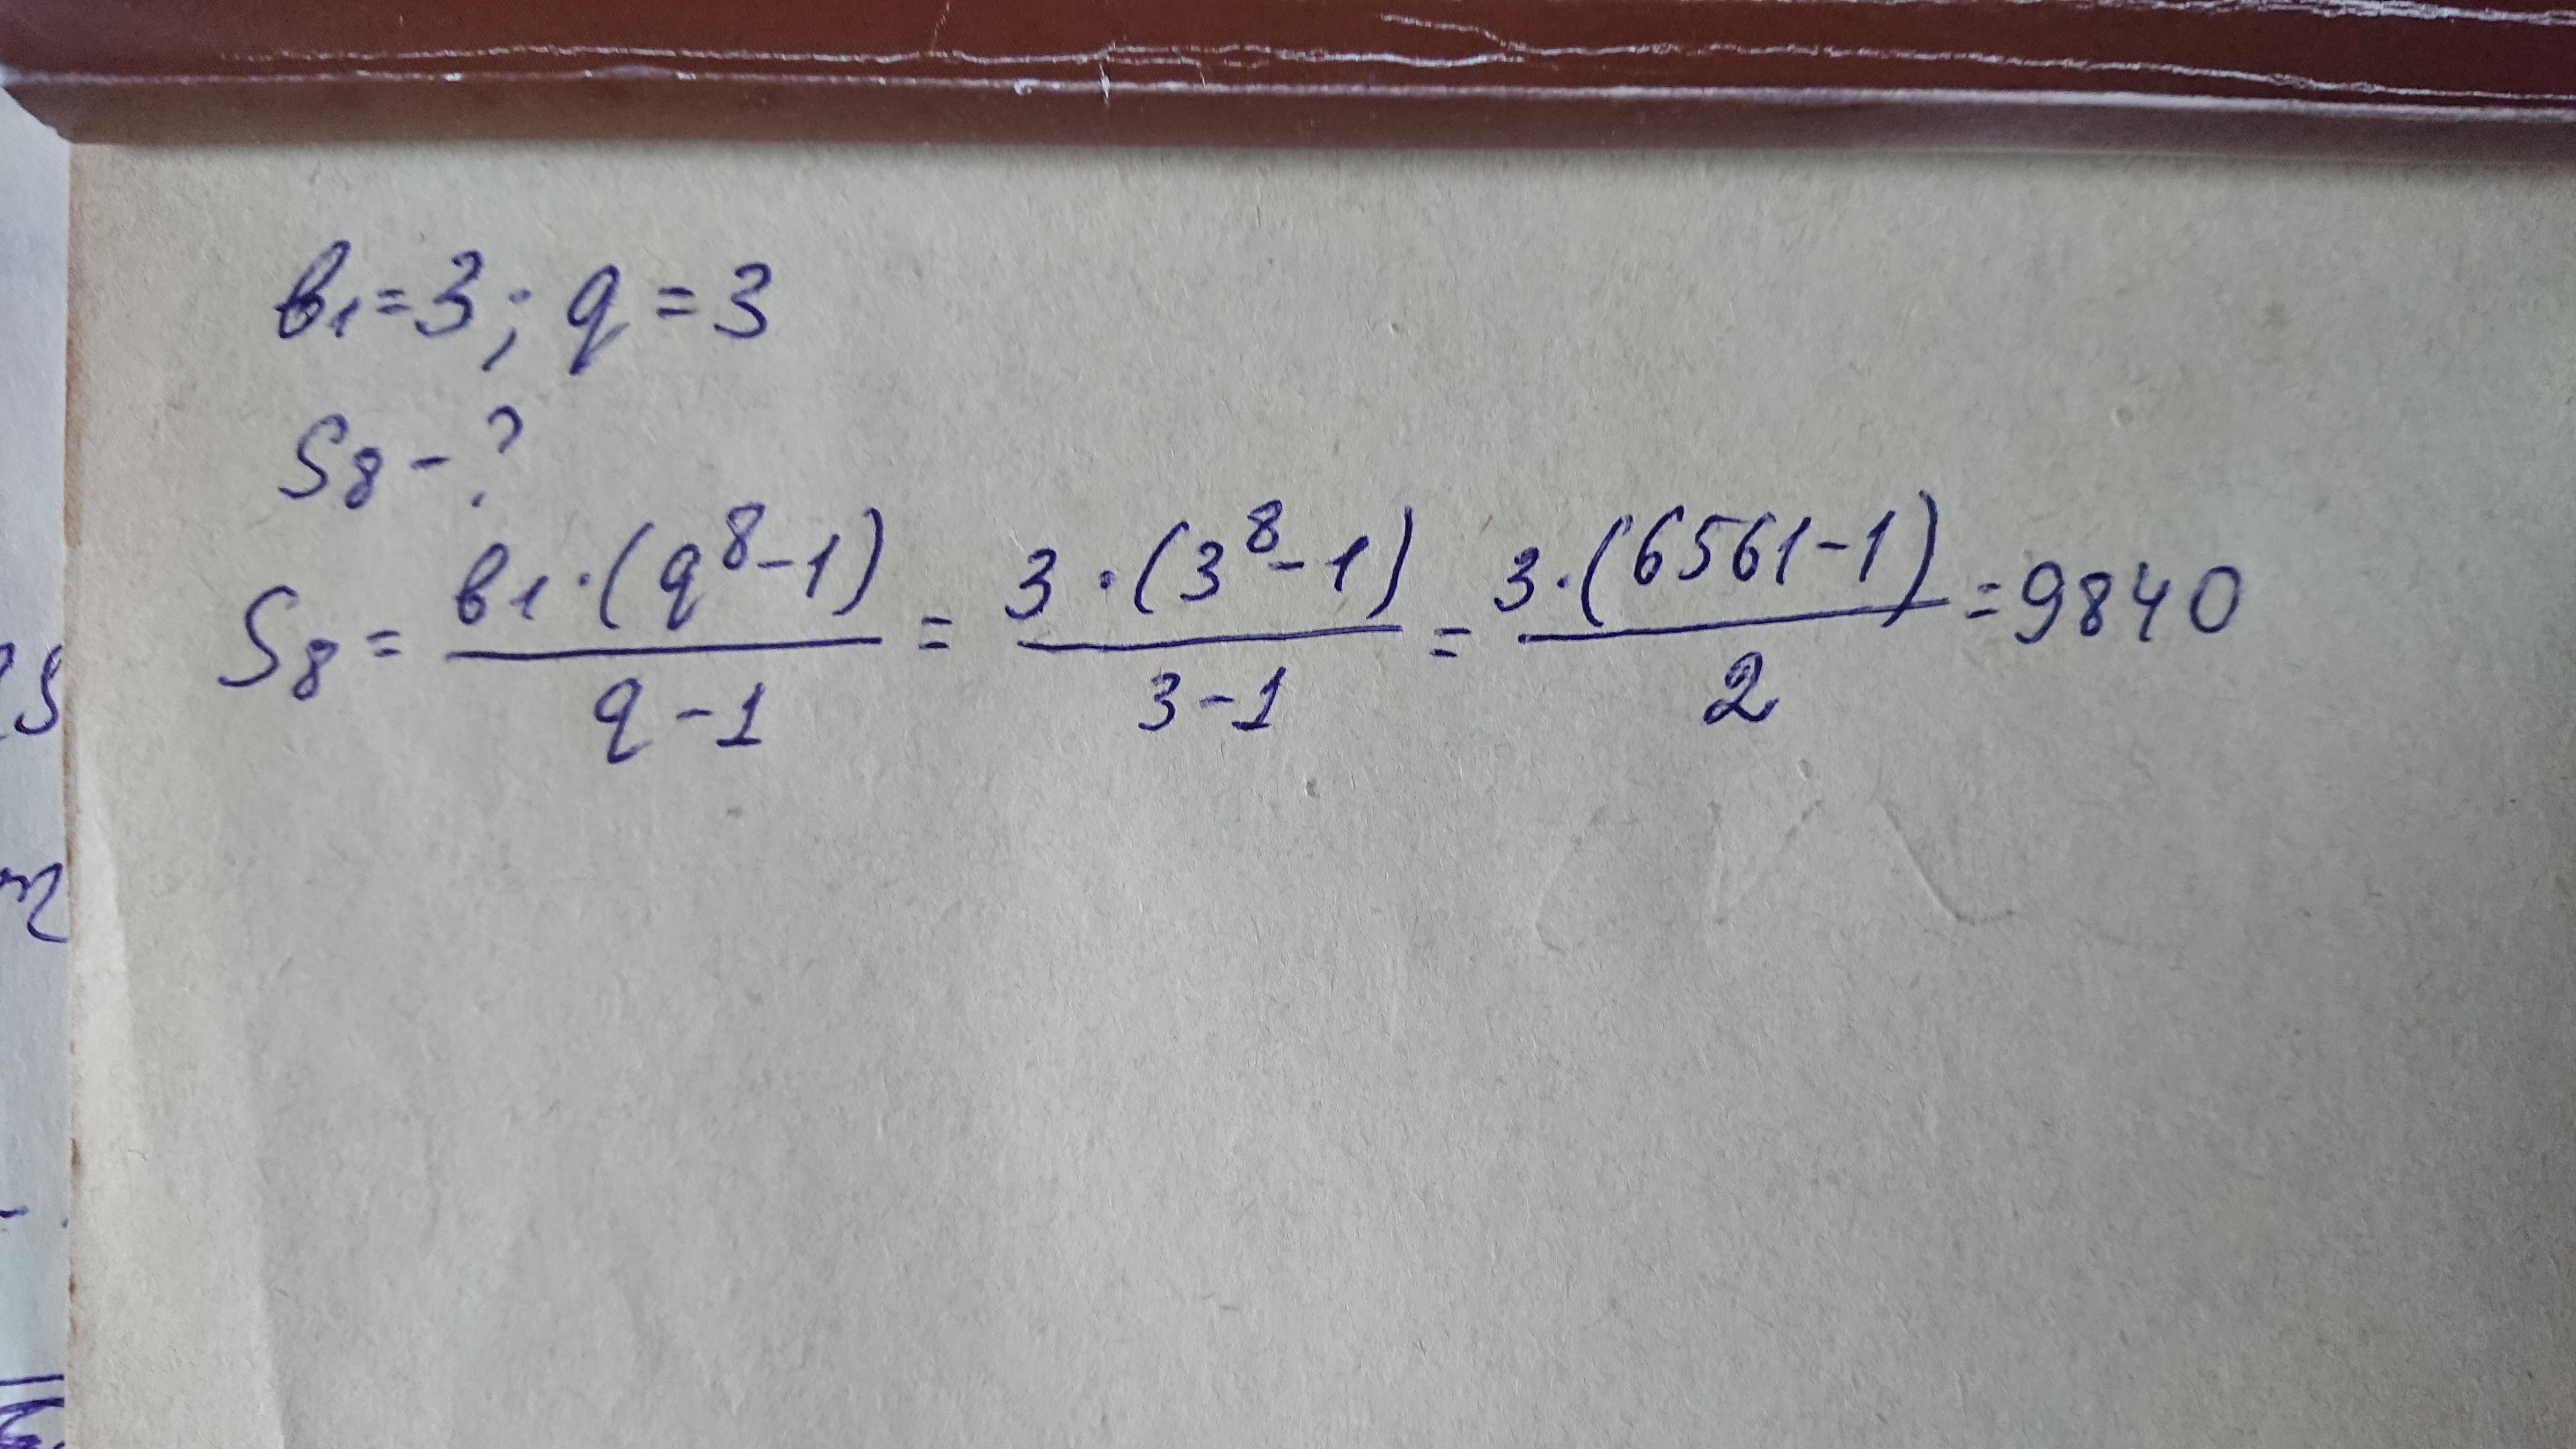 в₁ = 3; q = 3
S₈ - ?
S₈ = в₁·(q⁸-1)/(q-1) = 3·(3⁸-1)/(3-1) = 3·(6561-1)/2 = 9840